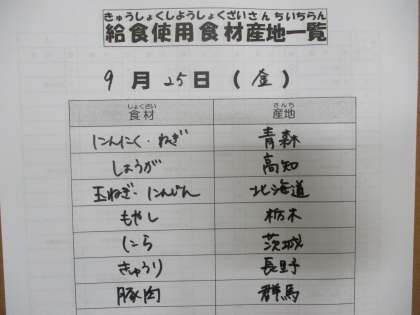 きゅうしょくしようしょくざいさんちいちらん
給食使用食材産地一覧
9月25日(金)
しょくざい さんち
食材 産地
にんにく・ねぎ 青森
しょうが 高知
玉ねぎ・にんじん 北海道
もやし 栃木
にら 茨城
きゅうり 長野
豚肉 群馬